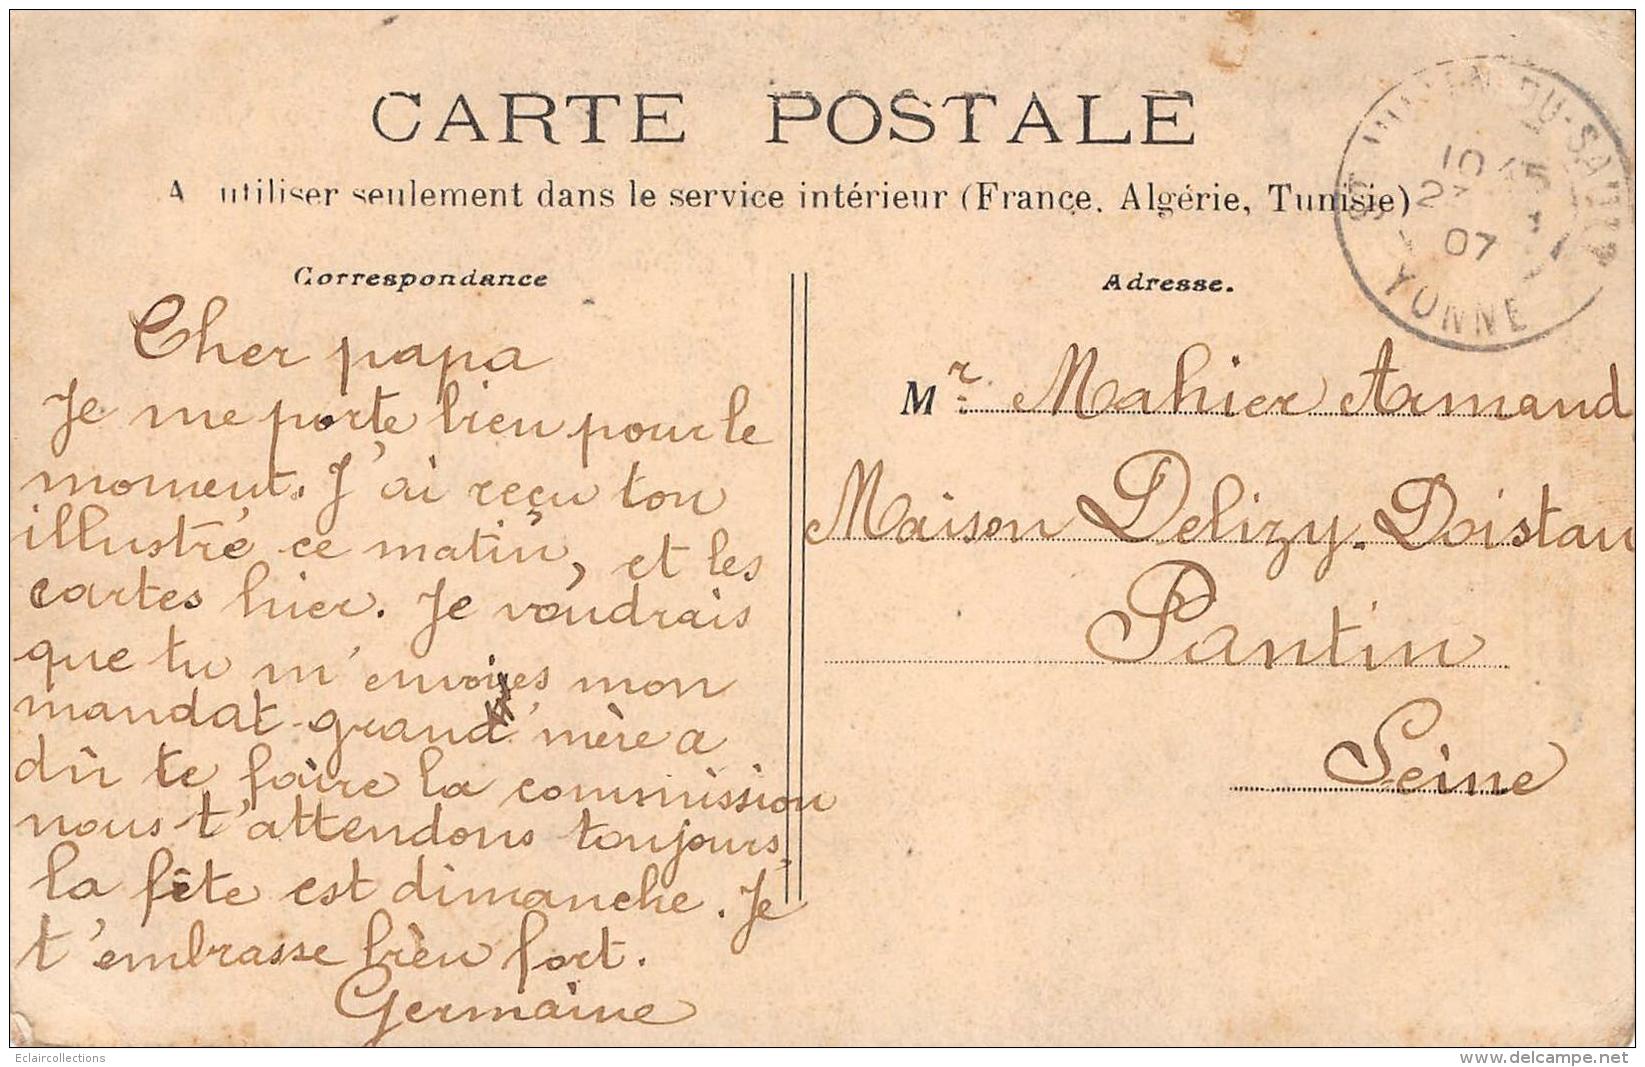 CARTE POSTALE
A utiliser seulement dans le service intérieur (France, Algérie, Tunisie)
DU-SAULT
10
2 5
07
YONNE
Correspondance
Cher papa
Je me porte bien pour le
moment. J'ai reçu ton
illustré ce matin, et les
cartes hier. Je voudrais
que tu m'envoies mon
mandat grand'mère a
dû te faire la commission
nous t'attendons toujours,
la fête est dimanche. Je
t'embrasse bien fort.
Germaine
Adresse.
Mr Mahier Armand
Maison Delizy. Doistau
Pantin
Seine
Eclaircollections
www.delcampe.net